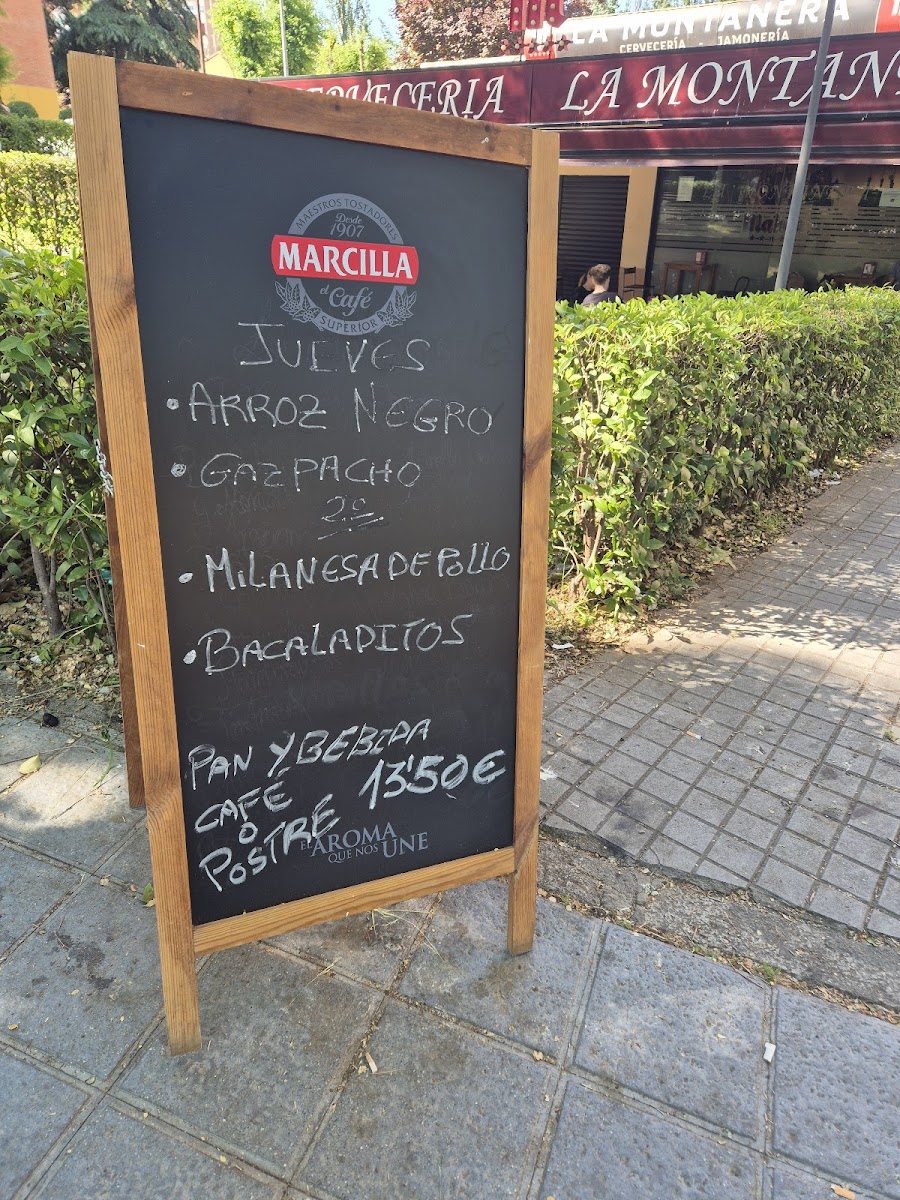 LA MONTANERA
CERVECERÍA - JAMONERÍA
RVECERIA LA MONTAN
MAESTROS TOSTADORES
Desde
1907
MARCILLA
el
Café
SUPERIOR
JUEVES
• ARROZ NEGRO
• GAZPACHO
2º
• MILANESA DE POLLO
• BACALADITOS
PAN Y BEBIDA
CAFÉ 13'50€
O
POSTRE
EL AROMA
QUE NOS UNE